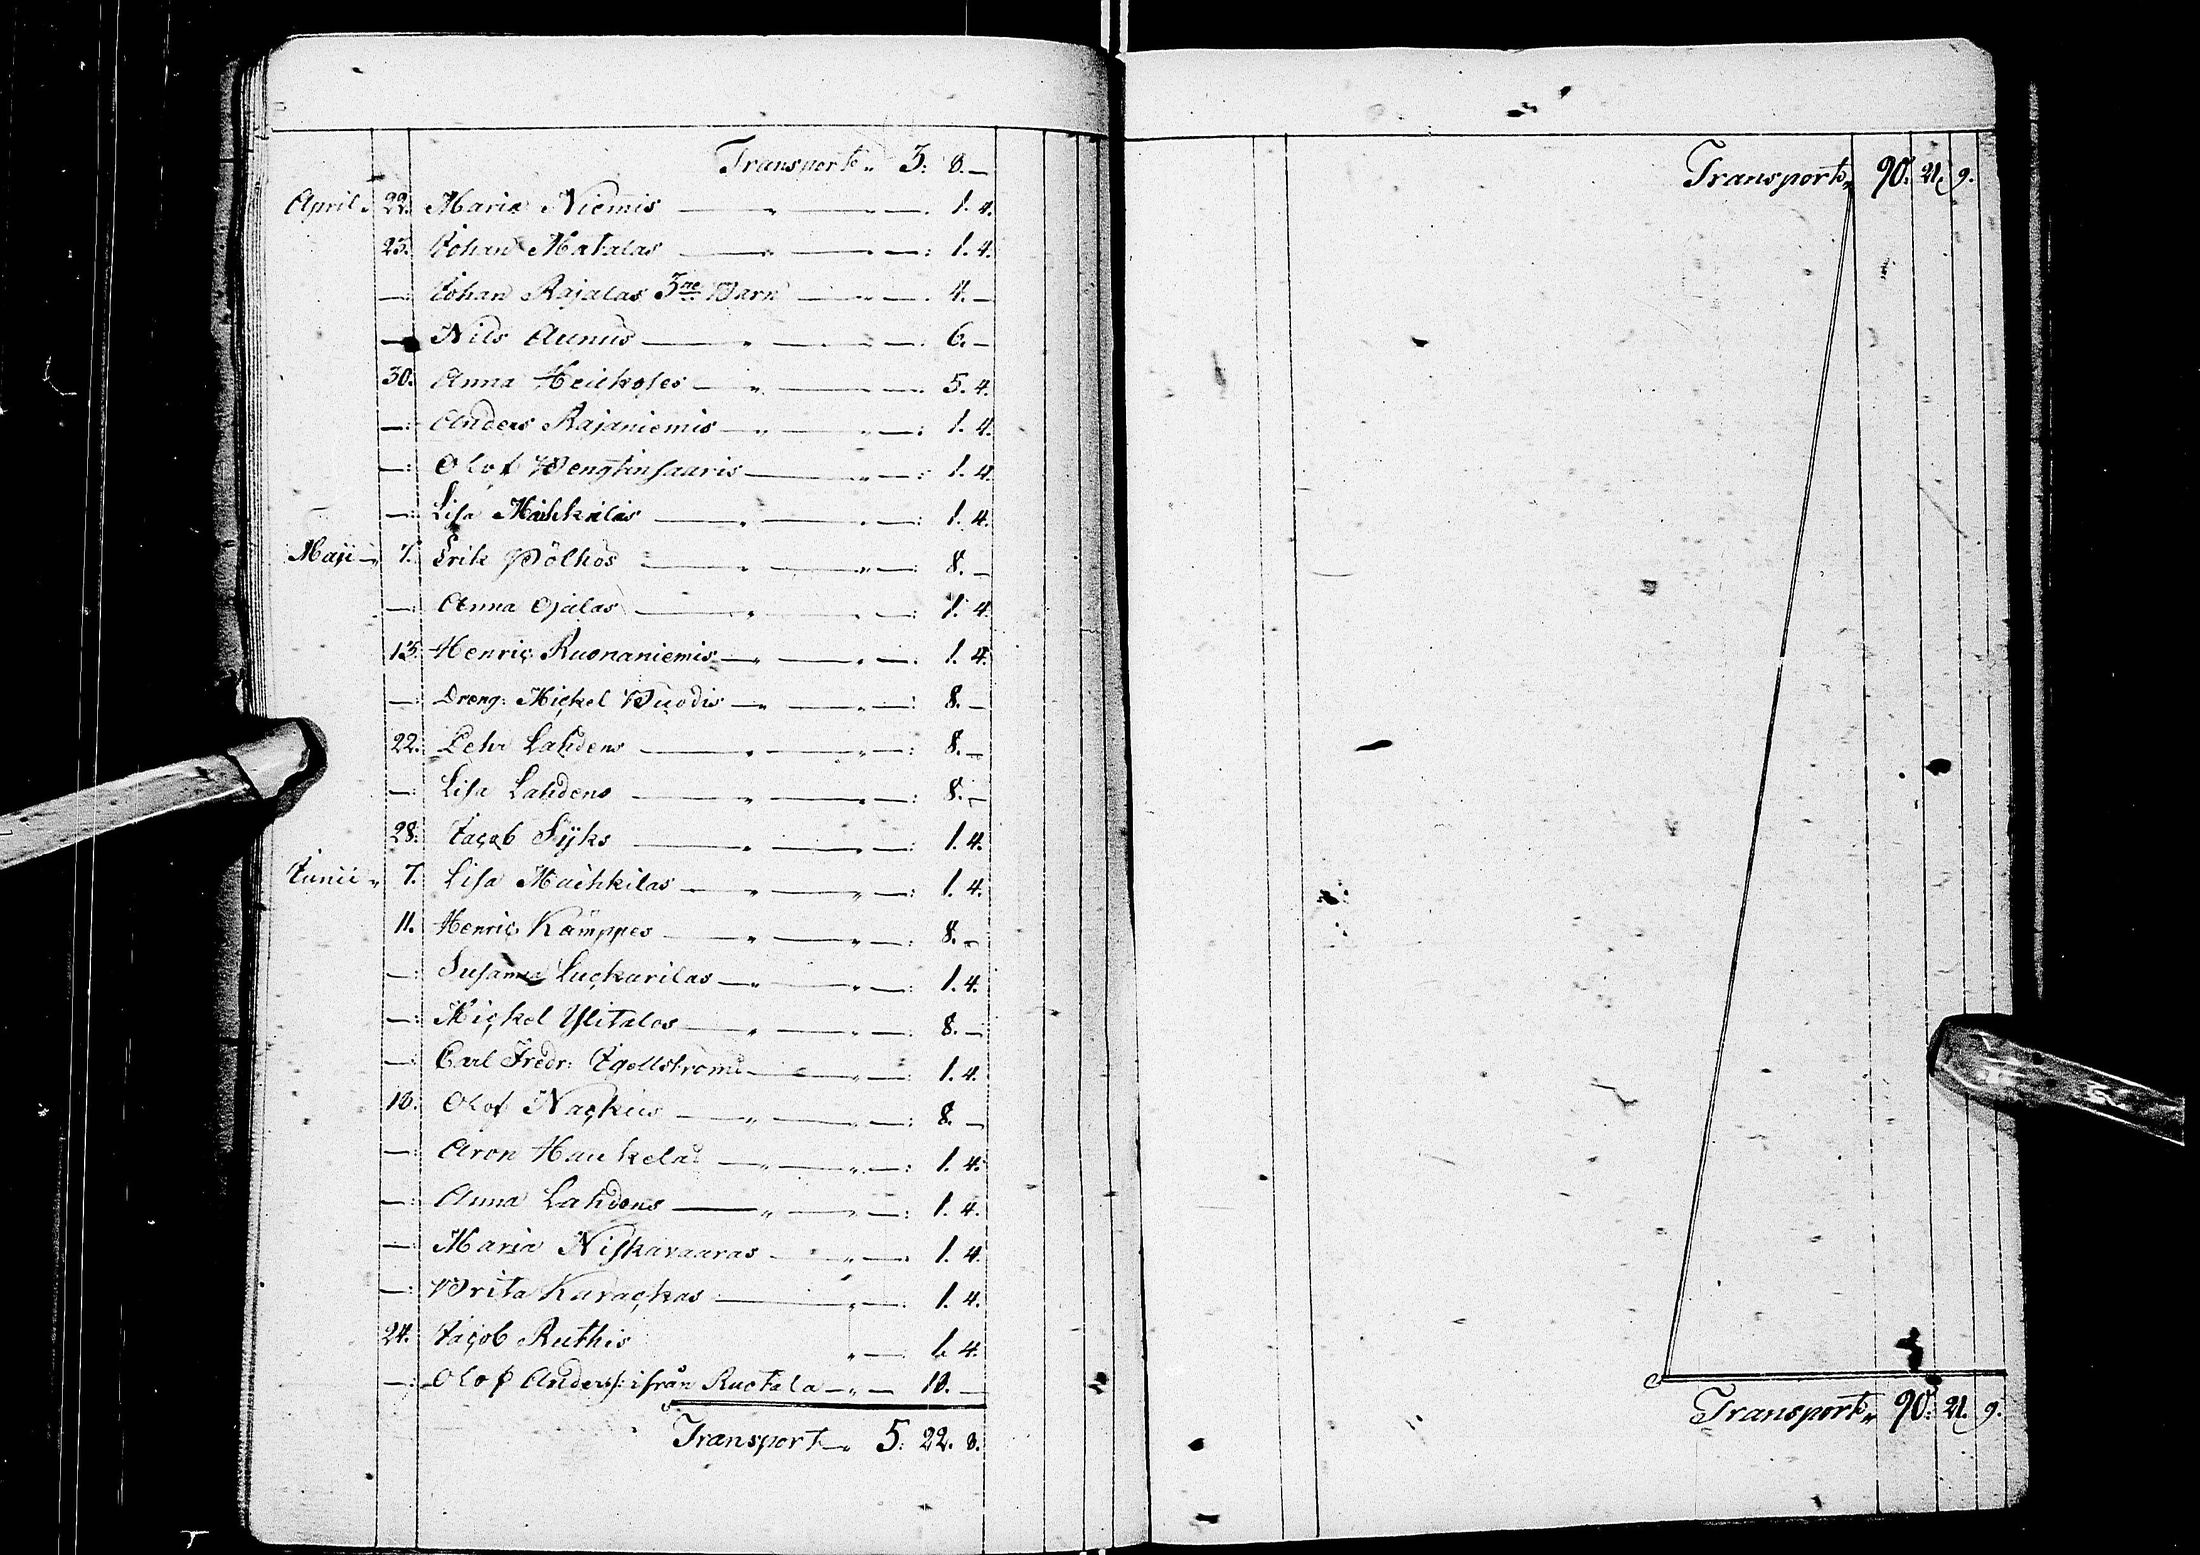 Transport „ 3: 8. —
April „ 22. Maria Niemis — „ — „ — . 1. 4.
23. Johan Matalas — „ — „ — : 1. 4.
— : Johan Rajalas 3ne Barn — „ — . 4. —
— Nils Aunus — „ — „ — . 6. —
30. Anna Heickoses — „ — „ — . 5. 4.
— : Anders Rajaniemis — „ — „ — : 1. 4.
— : Olof Wengtinsaaris — „ — : 1. 4.
— : Lisa — „ — „ — : 1. 4.
Maji — „ 7. Erik Pölhös — „ — „ — : 8. —
— : Anna Ojalas — „ — „ — : 1. 4.
13. Henric Ruonaniemis — „ — „ — . 1. 4.
— : Dreng: Mickel Wuodis — „ — „ — : 8. —
22. Pehr Lahdens — „ — „ — : 8. —
— : Lisa Lahdens — „ — „ — : 8. —
28. Jacob Sijks — „ — „ — : 1. 4.
Junii „ 7. Lisa Machkilas — „ — „ — : 1. 4.
11. Henric Kämppes — „ — „ — : 8. —
— : Susanna Luckarilas — „ — „ — : 1. 4.
— : Mickel Ylitalos — „ — „ — : 8. —
— : Carl Fredr: Igellströms — „ — : 1. 4.
18. Olof Nackius — „ — „ — : 8. —
— : Aron Haukelas — „ — „ — : 1. 4.
— : Anna Lahdens — „ — „ — : 1. 4.
— : Maria Niskavaaras — „ — : 1. 4.
— : Brita Karackas — „ — : 1. 4.
24. Jacob Ruthis „ — 1. 4.
— : Olof Anders: ifrån Ruotala — „ — 18. —
Transport — „ 5: 22. 8.
Transport „ 90. 21. 9.
Transport „ 90: 21. 9.